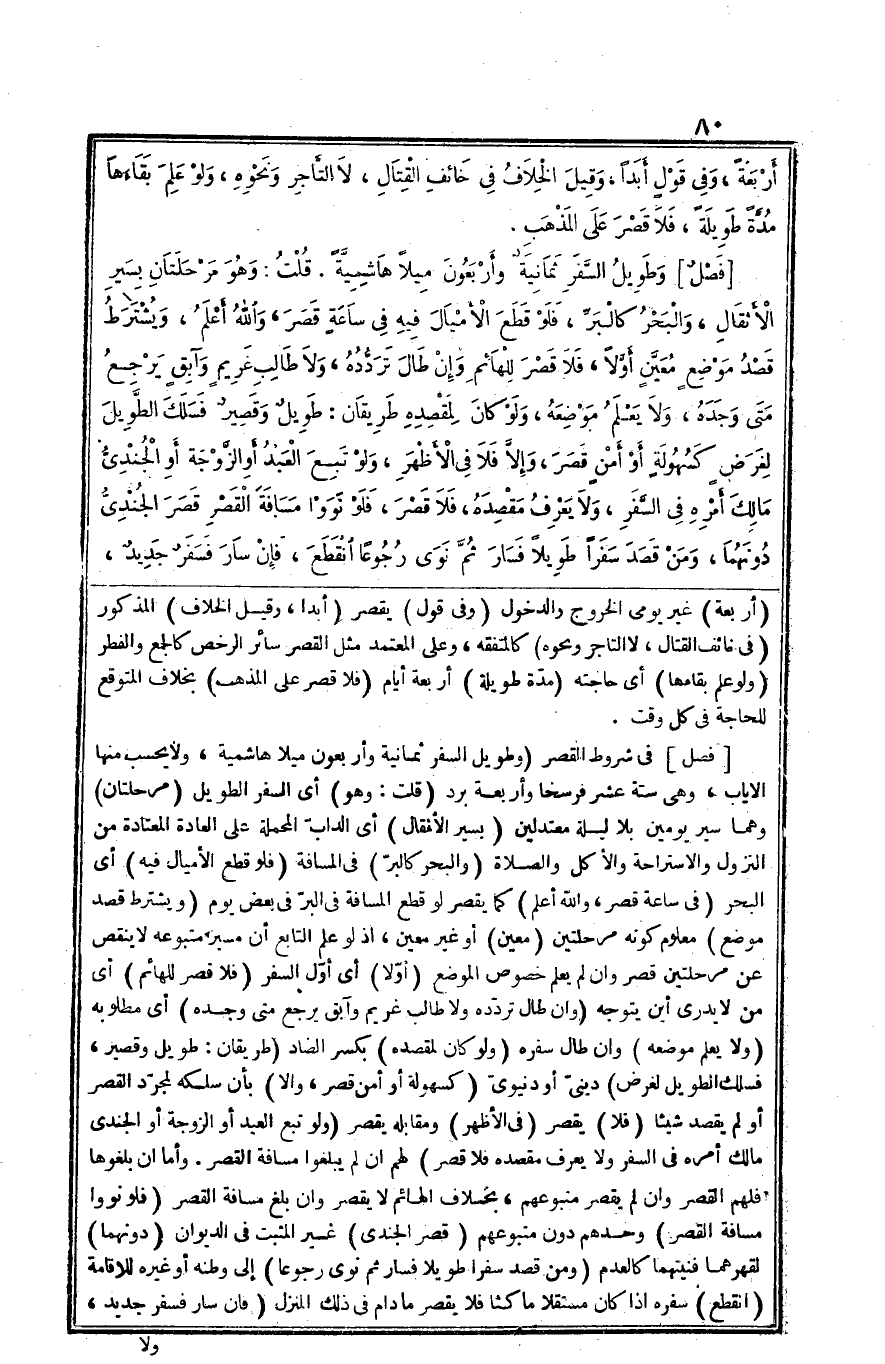 ٨٠
أَرْبَعَةً ، وَفِى قَوْلٍ أَبَداً ، وَقِيلَ الْخِلَافُ فِى خَائِفِ الْقِتَالِ ، لَا التَّاجِرِ وَنَحْوِهِ ، وَلَوْ عَلِمَ بَقَاءَهَا
مُدَّةً طَوِيلَةً ، فَلَا قَصْرَ عَلَى الْمَذْهَبِ .
[فَصْلٌ] وَطَوِيلُ السَّفَرِ ثَمَانِيَةٌ وَأَرْبَعُونَ مِيلاً هَاشِمِيَّةً . قُلْتُ : وَهُوَ مَرْحَلَتَانِ بِسَيْرِ
الْأَثْقَالِ ، وَالْبَحْرُ كَالْبَرِّ ، فَلَوْ قَطَعَ الْأَمْيَالَ فِيهِ فِى سَاعَةٍ قَصَرَ ، وَاللهُ أَعْلَمُ ، وَيُشْتَرَطُ
قَصْدُ مَوْضِعٍ مُعَيَّنٍ أَوَّلاً ، فَلَا قَصْرَ لِلْهَائِمِ وَإِنْ طَالَ تَرَدُّدُهُ ، وَلَا طَالِبِ غَرِيمٍ وَآبِقٍ يَرْجِعُ
مَتَى وَجَدَهُ ، وَلَا يَعْلَمُ مَوْضِعَهُ ، وَلَوْ كَانَ لِمَقْصِدِهِ طَرِيقَانِ : طَوِيلٌ وَقَصِيرٌ فَسَلَكَ الطَّوِيلَ
لِغَرَضٍ كَسُهُولَةٍ أَوْ أَمْنٍ قَصَرَ ، وَإِلَّا فَلَا فِى الْأَظْهَرِ ، وَلَوْ تَبِعَ الْعَبْدُ أَوِ الزَّوْجَةُ أَوِ الْجُنْدِىُّ
مَالِكَ أَمْرِهِ فِى السَّفَرِ ، وَلَا يَعْرِفُ مَقْصِدَهُ ، فَلَا قَصْرَ ، فَلَوْ نَوَوْا مَسَافَةَ الْقَصْرِ قَصَرَ الْجُنْدِىُّ
دُونَهُمَا ، وَمَنْ قَصَدَ سَفَراً طَوِيلاً فَسَارَ ثُمَّ نَوَى رُجُوعًا انْقَطَعَ ، فَإِنْ سَارَ فَسَفَرٌ جَدِيدٌ ،
(أربعة) غير يومى الخروج والدخول (وفى قول) يقصر (أبدا ، وقيل الخلاف) المذكور
(فى خائف القتال ، لا التاجر ونحوه) كالمتفقه ، وعلى المعتمد مثل القصر سائر الرخص كالجمع والفطر
(ولو علم بقاءها) أى حاجته (مدّة طويلة) أربعة أيام (فلا قصر على المذهب) بخلاف المتوقع
للحاجة فى كل وقت .
[فصل] فى شروط القصر (وطويل السفر ثمانية وأربعون ميلا هاشمية ، ولا يحسب منها
الاياب ، وهى ستة عشر فرسخا وأربعة برد (قلت : وهو) أى السفر الطويل (مرحلتان)
وهما سير يومين بلا ليلة معتدلين (بسير الأثقال) أى الدابّ المحملة على العادة المعتادة من
النزول والاستراحة والأكل والصلاة (والبحر كالبرّ) فى المسافة (فلو قطع الأميال فيه) أى
البحر (فى ساعة قصر ، والله أعلم) كما يقصر لو قطع المسافة فى البرّ فى بعض يوم (ويشترط قصد
موضع) معلوم كونه مرحلتين (معين) أو غير معين ، اذ لو علم التابع أن مسير متبوعه لا ينقص
عن مرحلتين قصر وان لم يعلم خصوص الموضع (أوّلا) أى أوّل السفر (فلا قصر للهائم) أى
من لا يدرى أين يتوجه (وان طال تردّده ولا طالب غريم وآبق يرجع متى وجده) أى مطلوبه
(ولا يعلم موضعه) وان طال سفره (ولو كان لمقصده) بكسر الضاد (طريقان : طويل وقصير ،
فسلك الطويل لغرض) دينىّ أو دنيوىّ (كسهولة أو أمن قصر ، والا) بأن سلكه لمجرّد القصر
أو لم يقصد شيئا (فلا) يقصر (فى الأظهر) ومقابله يقصر (ولو تبع العبد أو الزوجة أو الجندى
مالك أمره فى السفر ولا يعرف مقصده فلا قصر) لهم ان لم يبلغوا مسافة القصر . وأما ان بلغوها
فلهم القصر وان لم يقصر متبوعهم ، بخلاف الهائم لا يقصر وان بلغ مسافة القصر (فلو نووا
مسافة القصر) وحدهم دون متبوعهم (قصر الجندى) غير المثبت فى الديوان (دونهما)
لقهرهما فنيتهما كالعدم (ومن قصد سفرا طويلا فسار ثم نوى رجوعا) إلى وطنه أو غيره للاقامة
(انقطع) سفره اذا كان مستقلا ماكثا فلا يقصر مادام فى ذلك المنزل (فان سار فسفر جديد ،
ولا